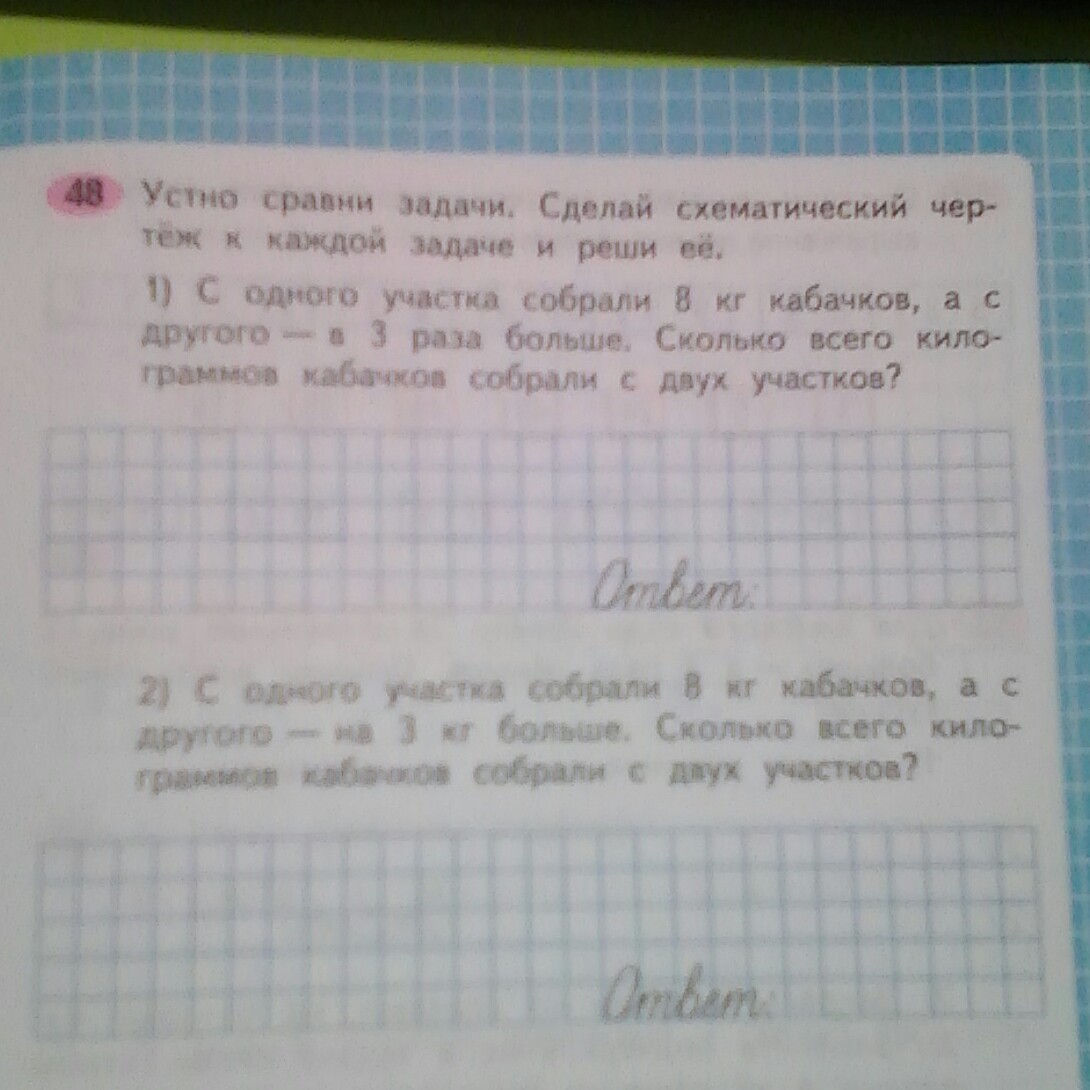 48 Устно сравни задачи. Сделай схематический чер-
тёж к каждой задаче и реши её.
1) С одного участка собрали 8 кг кабачков, а с
другого — в 3 раза больше. Сколько всего кило-
граммов кабачков собрали с двух участков?
Ответ:
2) С одного участка собрали 8 кг кабачков, а с
другого — на 3 кг больше. Сколько всего кило-
граммов кабачков собрали с двух участков?
Ответ: